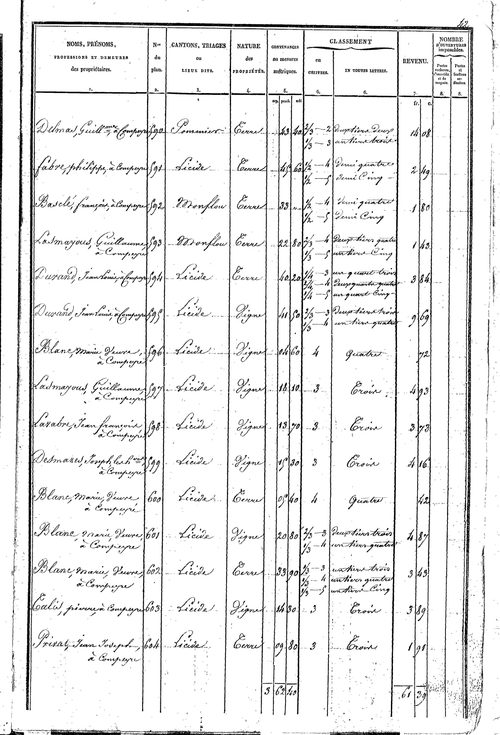 NOMS, PRÉNOMS, PROFESSIONS ET DEMEURES des propriétaires. | Nos du plan. | CANTONS, TRIAGES ou LIEUX DITS. | NATURE des PROPRIÉTÉS. | CONTENANCES en mesures métriques. | CLASSEMENT en CHIFFRES. | EN TOUTES LETTRES. | REVENU. | NOMBRE D'OUVERTURES imposables.
1. 2. 3. 4. 5. 6. 7. 8.
Delmas, à Compeyre 590 Pomenier Terre 43 40 2/3 - 2 deux tiers deux 14 08
1/3 - 3 un tiers trois
Fabre, philippe, à Compeyre 591 Licide Terre 45 60 1/2 - 4 demi quatre 2 49
1/2 - 5 demi Cinq
Basclé, françois, à Compeyre 592 Monflou Terre 33 " 1/2 - 4 demi quatre 1 80
1/2 - 5 demi Cinq
Lasmayous, Guillaume, 593 Monflou Terre 22 80 2/3 - 4 Deux tiers quatre 1 43
à Compeyre 1/3 - 5 un tiers Cinq
Durand, Jean Louis, à Compeyre 594 Licide Terre 40 20 1/4 - 3 un quart trois 3 84
2/4 - 4 Deux quarts quatre
1/4 - 5 un quart Cinq
Durand, Jean Louis, à Compeyre 595 Licide Vigne 41 50 2/3 - 3 Deux tiers trois 9 69
1/3 - 4 un tiers quatre
Blanc, marie, Veuve, 596 Licide Vigne 04 60 4 quatre 72
à Compeyre
Lasmayous, Guillaume, 597 Licide Vigne 18 10 3 Trois 4 93
à Compeyre
Laxabre, Jean françois 598 Licide Vigne 13 70 3 Trois 3 73
à Compeyre
Desmazes, Joseph 599 Licide Vigne 15 30 3 Trois 4 16
à Compeyre
Blanc, marie, Veuve 600 Licide Terre 05 40 4 Quatre 42
à Compeyre
Blanc, marie, Veuve 601 Licide Vigne 20 80 2/3 - 3 deux tiers trois 4 87
à Compeyre 1/3 - 4 un tiers quatre
Blanc, marie, Veuve, 602 Licide Terre 33 90 1/3 - 3 un tiers trois 3 43
à Compeyre 1/3 - 4 un tiers quatre
1/3 - 5 un tiers Cinq
pierre à Compeyre 603 Licide Vigne 14 30 3 Trois 3 89
Privat, Jean Joseph, 604 Licide Terre 09 80 3 Trois 1 91
à Compeyre
3 62 40 61 39